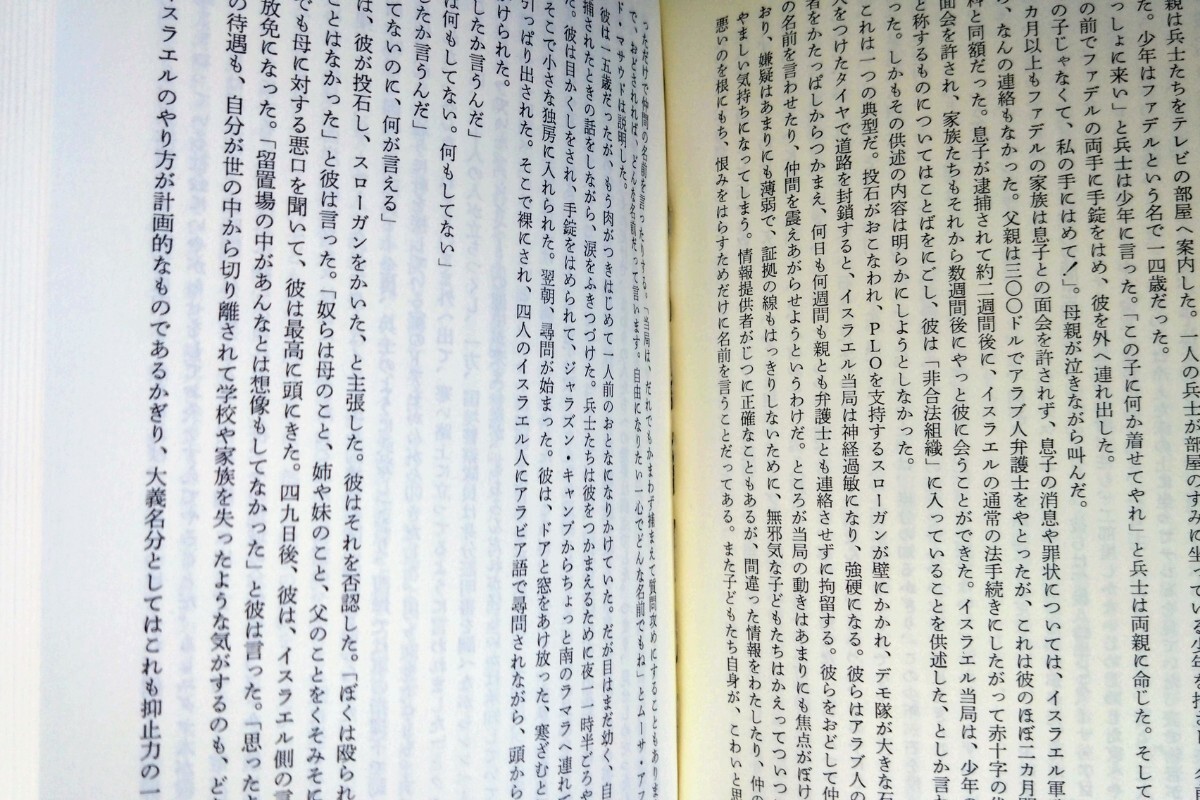 親は兵士たちをテレビの部屋へ案内した。一人の兵士が部屋のすみに坐っている少年を指さし
た。少年はファデルという名で一四歳だった。
っしょに来い」と兵士は少年に言った。「この子に何か着せてやれ」と兵士は両親に命じた。そして
の前でファデルの両手に手錠をはめ、彼を外へ連れ出した。
の子じゃなくて、私の手にはめて!」。母親が泣きながら叫んだ。
カ月以上もファデルの家族は息子との面会を許されず、息子の消息や罪状については、イスラエル軍
ら、なんの連絡もなかった。父親は三〇〇ドルでアラブ人弁護士をやとったが、これは彼のほぼ二カ月
料と同額だった。息子が逮捕されて約二週間後に、イスラエルの通常の法手続きにしたがって赤十字の
面会を許され、家族たちもそれから数週間後にやっと彼に会うことができた。イスラエル当局は、少年の
と称するものについてはことばをにごし、彼は「非合法組織」に入っていることを供述した、としか言
った。しかもその供述の内容は明らかにしようとしなかった。
これは一つの典型だ。投石がおこなわれ、PLOを支持するスローガンが壁にかかれ、デモ隊が大きな石
火をつけたタイヤで道路を封鎖すると、イスラエル当局は神経過敏になり、強硬になる。彼らはアラブ人の
者をかたっぱしからつかまえ、何日も何週間も親とも弁護士とも連絡させずに拘留する。彼らをおどして仲
の名前を言わせたり、仲間を震えあがらせようというわけだ。ところが当局の動きはあまりにも焦点がぼけ
おり、嫌疑はあまりにも薄弱で、証拠の線もはっきりしないために、無邪気な子どもたちはかえってつい
やましい気持ちになってしまう。情報提供者がじつに正確なこともあるが、間違った情報をわたしたり、仲の
悪いのを根にもち、恨みをはらすためだけに名前を言うことだってある。また子どもたち自身が、こわいと思
っただけで仲間の名前を言ったりする。「当局は、だれでもかまわず捕まえて質問攻めにすることもありま
で、おどされれば、どんな名前だって言います。自由になりたい一心でどんな名前でもね」とムーサ・ア
ド・マサウドは説明した。
彼は一五歳だったが、もう肉がつきはじめて一人前のおとなになりかけていた。だが目はまだ幼く、自
捕されたときの話をしながら、涙をふきつづけた。兵士たちは彼をつかまえるために夜一一時半ごろや
た。彼は目かくしをされ、手錠をはめられて、ジャラズン・キャンプからちょっと南のラマラへ連れて
そこで小さな独房に入れられた。翌朝、尋問が始まった。彼は、ドアと窓をあけ放った、寒ざむと
引っぱり出された。そこで裸にされ、四人のイスラエル人にアラビア語で尋問されながら、頭から
けられた。
したか言うんだ」
は何もしてない。何もしてない」
したか言うんだ」
てないのに、何が言える」
は、彼が投石し、スローガンをかいた、と主張した。彼はそれを否認した。「ぼくは殴られ
ことはなかった」と彼は言った。「奴らは母のこと、姉や妹のこと、父のことをくそみそに
でも母に対する悪口を聞いて、彼は最高に頭にきた。四九日後、彼は、イスラエル側の言
放免になった。「留置場の中があんなとは想像もしてなかった」と彼は言った。「思ったと
の待遇も、自分が世の中から切り離されて学校や家族を失ったような気がするのも、ど
イスラエルのやり方が計画的なものであるかぎり、大義名分としてはこれも抑止力の一